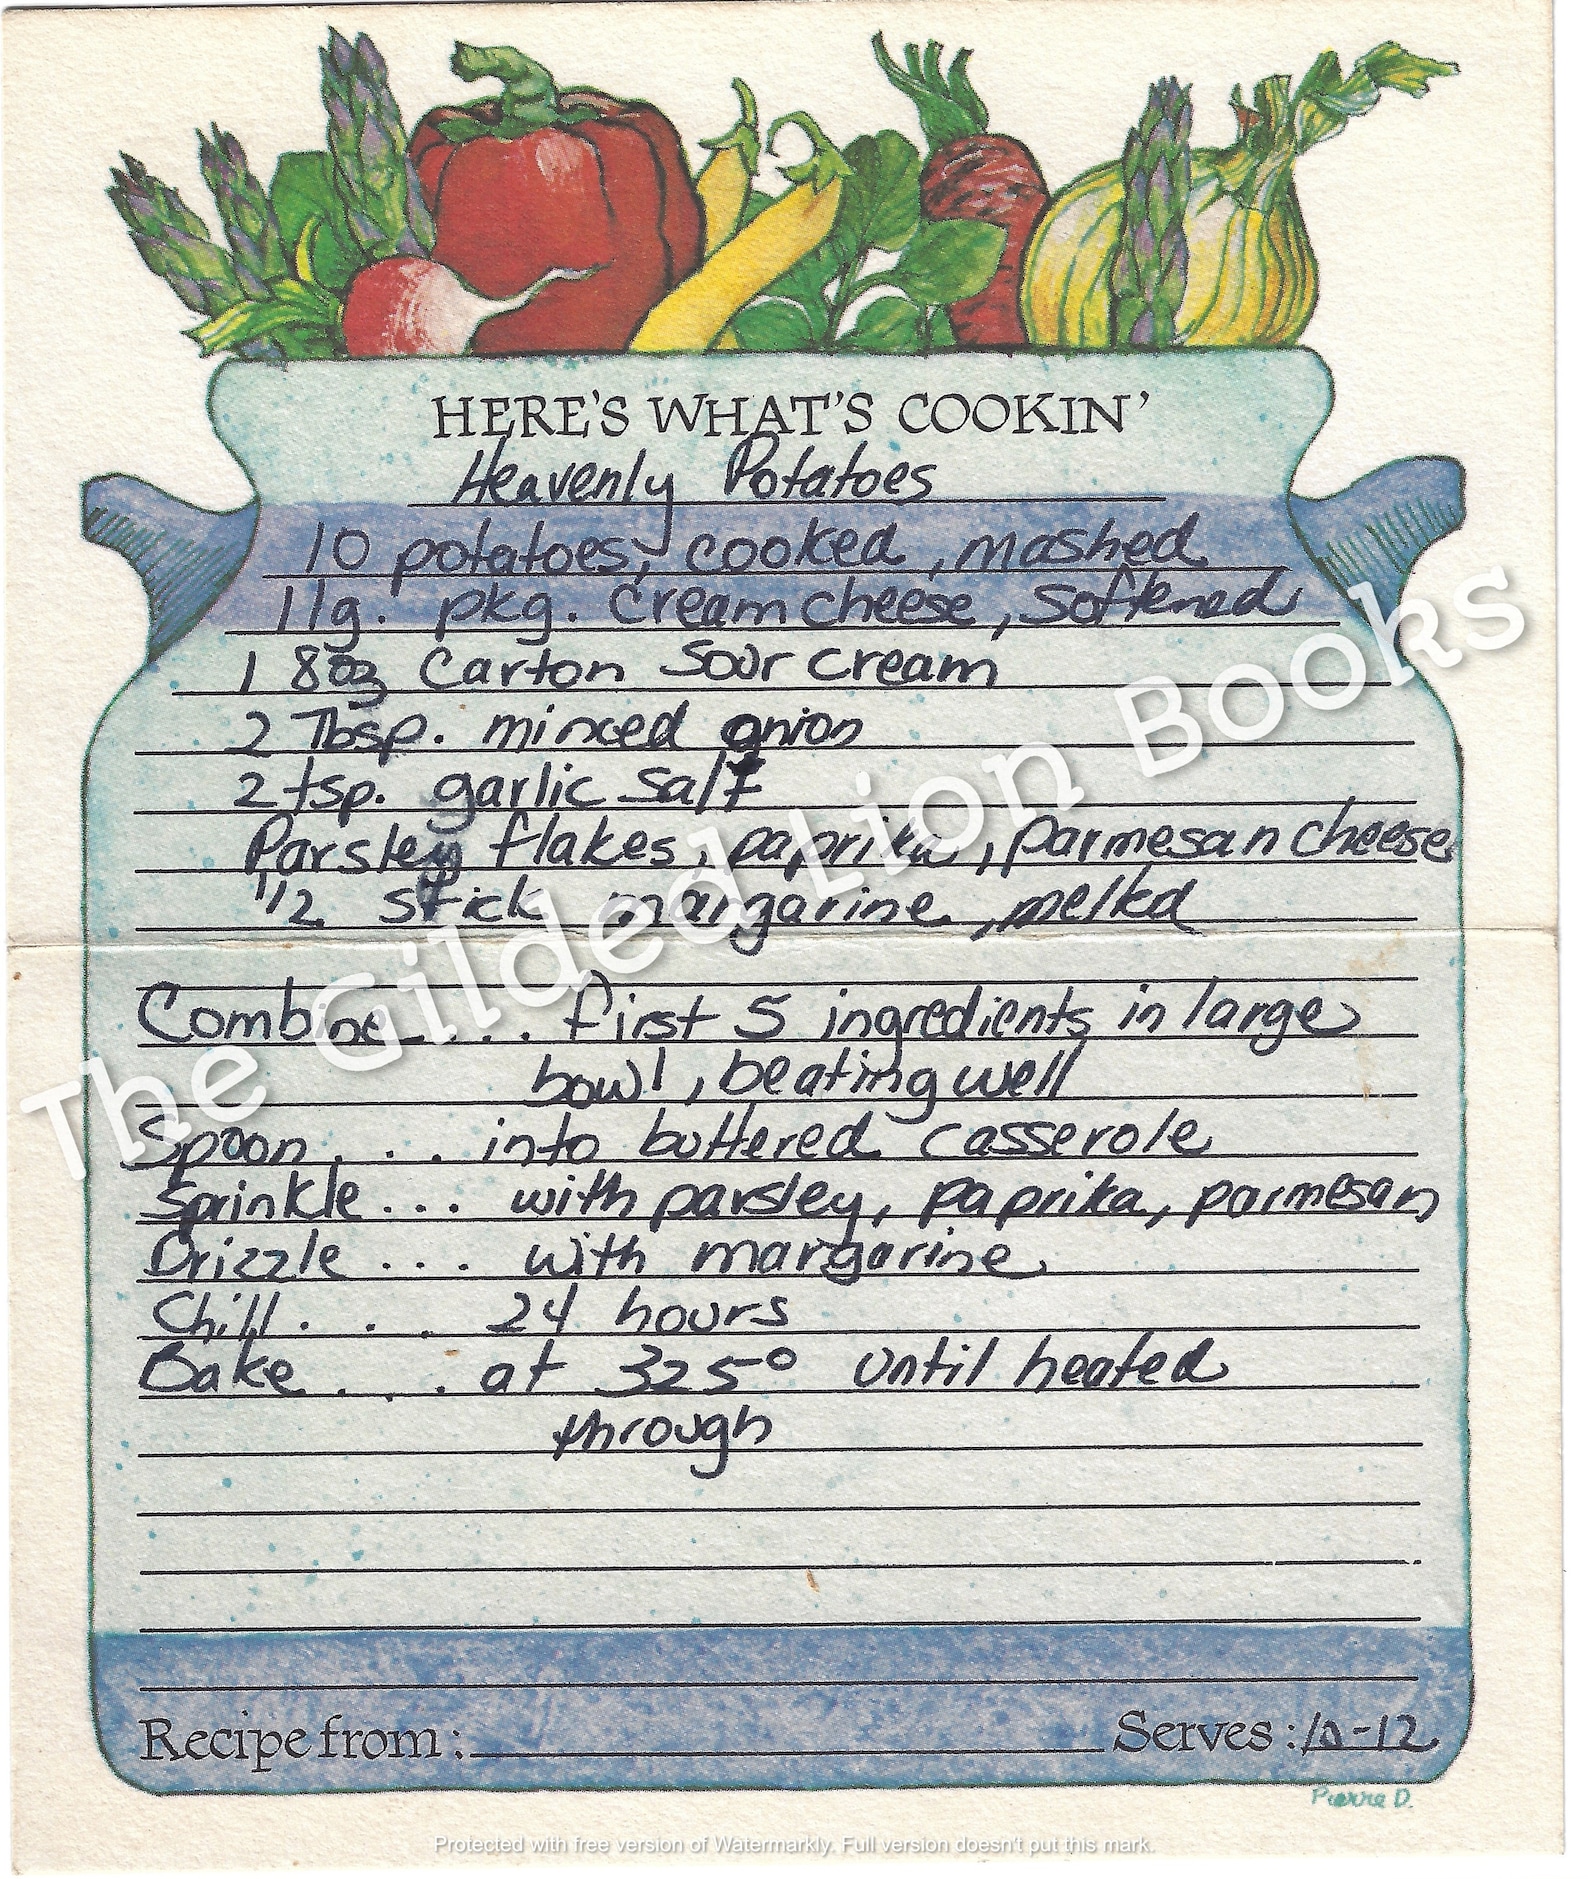 HERE'S WHAT'S COOKIN'
Heavenly Potatoes
10 potatoes, cooked, mashed
1 lg. pkg. cream cheese, softened
1 8oz carton sour cream
2 Tbsp. minced onion
2 tsp. garlic salt
Parsley flakes, paprika, parmesan cheese
1/2 stick margarine, melted
Combine.... first 5 ingredients in large
bowl, beating well
Spoon... into buttered casserole
Sprinkle... with parsley, paprika, parmesan
Drizzle... with margarine
Chill... 24 hours
Bake... at 325° until heated
through
Recipe from: Serves: 10-12
Pierre D.
The Gilded Lion Books
Protected with free version of Watermarkly. Full version doesn't put this mark.